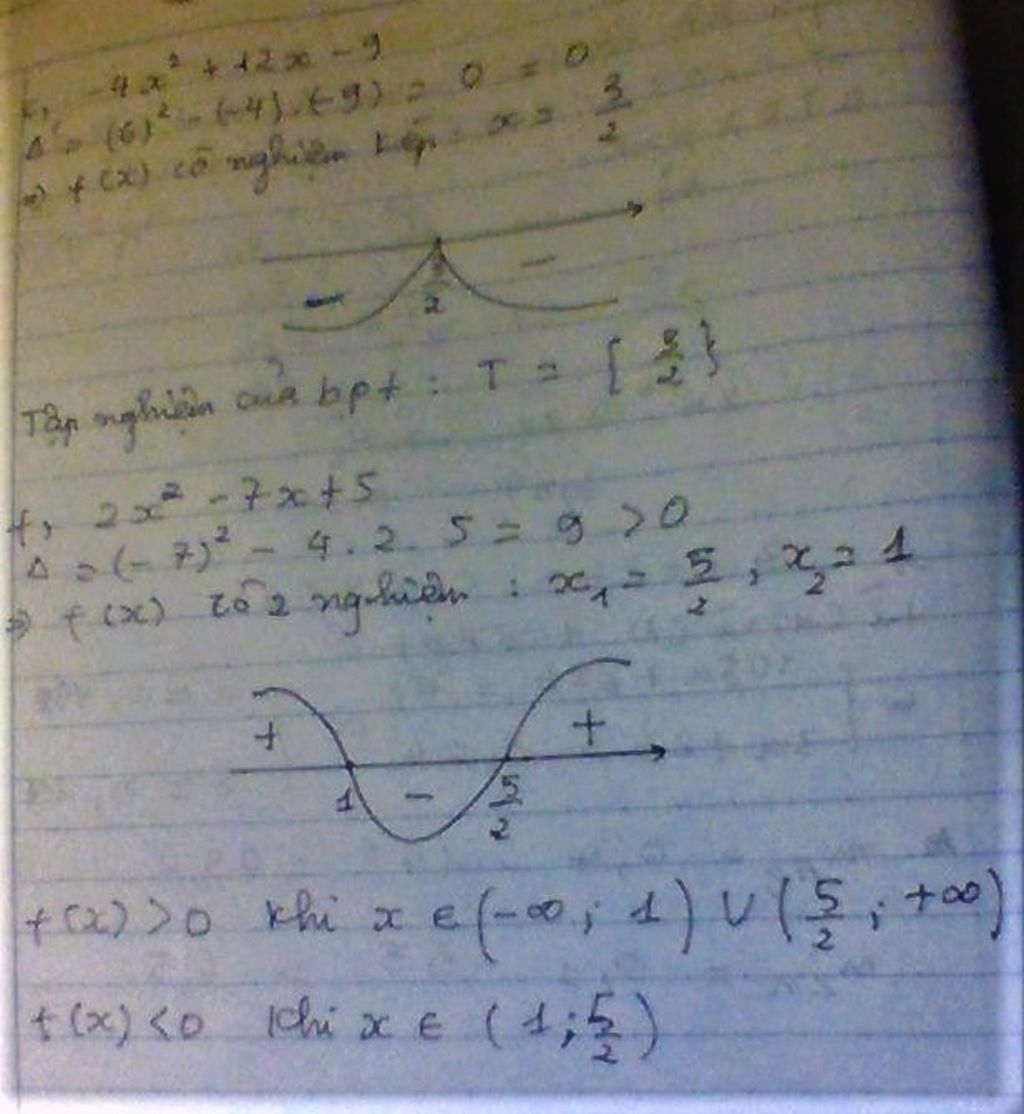 e, -4x² + 12x - 9
Δ' = (6)² - (-4).(-9) = 0 = 0
⇒ f(x) có nghiệm kép : x = 3/2
- 3/2 -
Tập nghiệm của bpt : T = { 3/2 }
f, 2x² - 7x + 5
Δ = (-7)² - 4.2.5 = 9 > 0
⇒ f(x) có 2 nghiệm : x₁ = 5/2 ; x₂ = 1
+ 1 - 5/2 +
f(x) > 0 khi x ∈ (-∞ ; 1) ∪ (5/2 ; +∞)
f(x) < 0 khi x ∈ (1 ; 5/2)